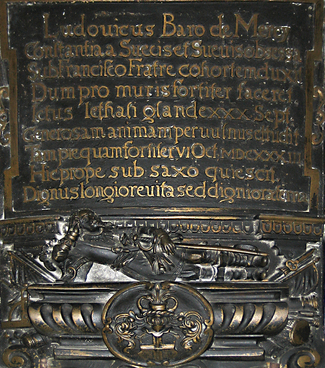 Ludovicus Baro de Mercy
Constantia a Suecis et Suevis obsessa
sub Francisco Fratre cohortem duxit
Dum pro muris fortiter faceret
Ictus lethali glande XXX Sept
Generosam animam per vulnus effudit
quam fortiter VI Oct MDCXXXIII
Hic prope sub saxo quiescit
Dignus longiore vita sed digniori